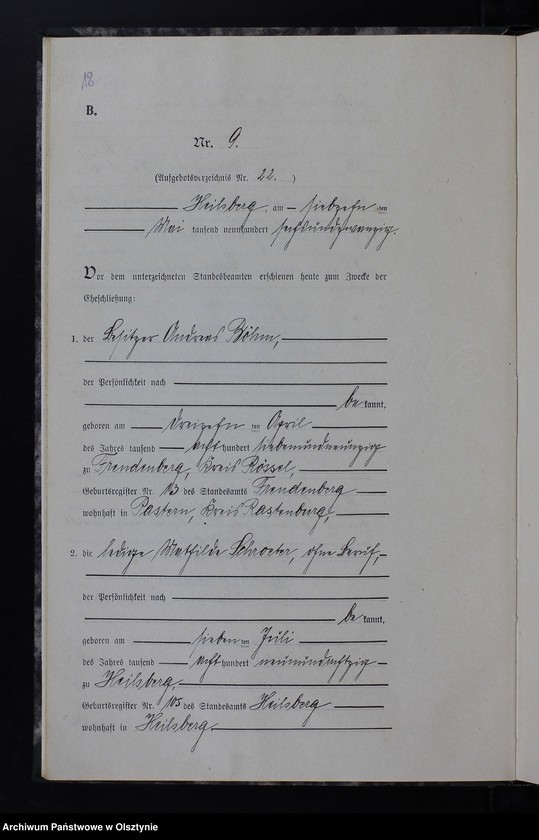 18
B.
Nr. 9.
(Aufgebotsverzeichnis Nr. 22. )
Heilsberg, am siebzehn ten
Mai tausend neunhundert sechsundzwanzig.
Vor dem unterzeichneten Standesbeamten erschienen heute zum Zwecke der
Eheschließung:
1. der Besitzer Andreas Böhm,
der Persönlichkeit nach
be kannt,
geboren am dreizehn ten April
des Jahres tausend acht hundert siebenundneunzig
zu Freudenberg, Kreis Rössel,
Geburtsregister Nr. 13 des Standesamts Freudenberg
wohnhaft in Pastern, Kreis Rastenburg,
2. die ledige Mathilde Schroeter, ohne Beruf,
der Persönlichkeit nach
be kannt,
geboren am sieben ten Juli
des Jahres tausend acht hundert neunundachtzig
zu Heilsberg,
Geburtsregister Nr. 105 des Standesamts Heilsberg
wohnhaft in Heilsberg
Archiwum Państwowe w Olsztynie